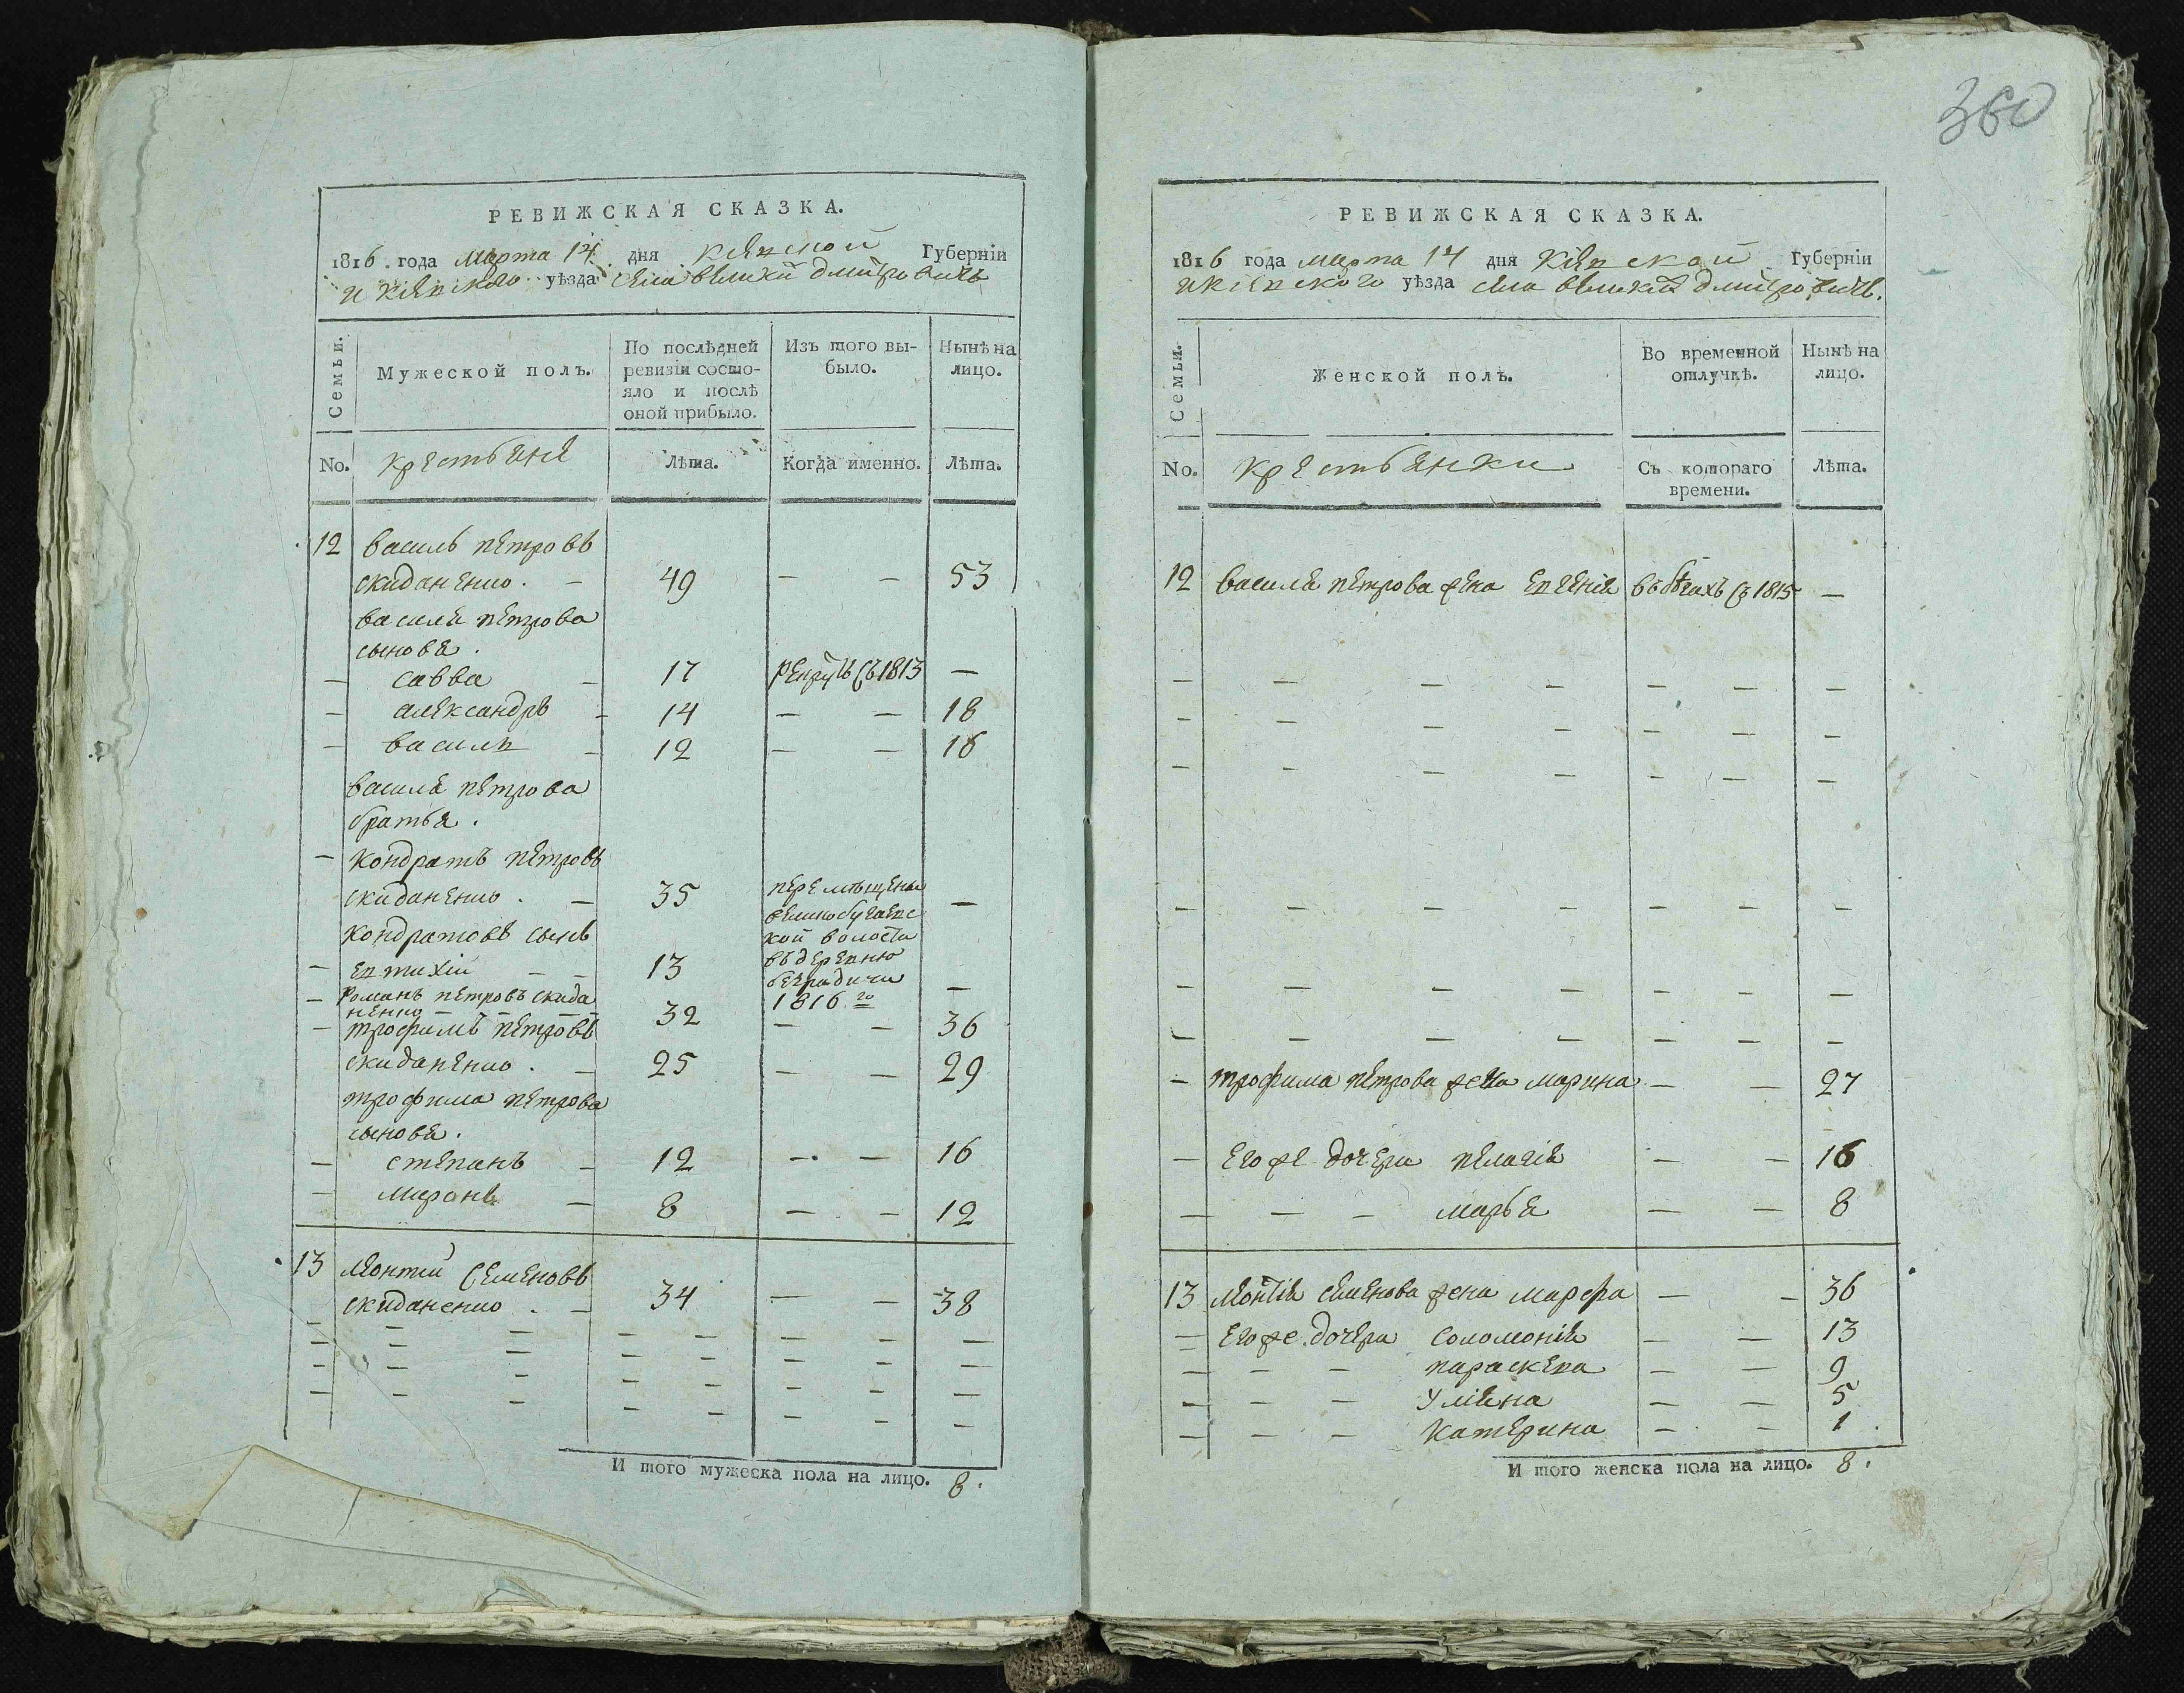 360
РЕВИЖСКАЯ СКАЗКА.
1816 года марта 14 дня Кіевской Губерніи
и Кіевского уѣзда села великихъ дмитровичь
Семьи.
Мужеской полъ.
По послѣдней ревизіи состояло и послѣ оной прибыло.
Изъ того выбыло.
Нынѣ на лицо.
No. крестьяне
Лѣта.
Когда именно.
Лѣта.
12 василь петровъ
скиданенко. – 49 – – 53
василя петрова
сыновя.
– савва – 17 рекрутъ съ 1813 –
– александръ – 14 – – 18
– василь – 12 – – 16
василя петрова
братья.
– кондратъ петровъ
скиданенко. – 35 перемѣщены –
кондратовъ сынъ
– евтихій – – 13
кой волости
въ деревню
безрадичи –
1816 го
– романъ петровъ скида
ненко – – – – 32 – – 36
– трофимъ петровъ
скиданенко. – 25 – – 29
трофима петрова
сыновя.
– степанъ – 12 – – 16
– миронъ – 8 – – 12
13 леонтій семеновъ
скиданенко. – 34 – – 38
И того мужеска пола на лицо. 8.
РЕВИЖСКАЯ СКАЗКА.
1816 года марта 14 дня Кіевской Губерніи
и кіевского уѣзда села великихъ дмитровичь.
Семьи.
Женской полъ.
Во временной отлучкѣ.
Нынѣ на лицо.
No. крестьянки
Съ котораго времени.
Лѣта.
12 василя петрова жена евгенія въ бѣгахъ съ 1815 –
– трофима петрова жена марина – – 27
– его же дочери пелагія – – 16
– – – марья – – 8
13 леонтія семенова жена марфа – – 36
– его же дочери соломонія – – 13
– – – параскева – – 9
– – – уліяна – – 5
– – – катерина – – 1
И того женска пола на лицо. 8.